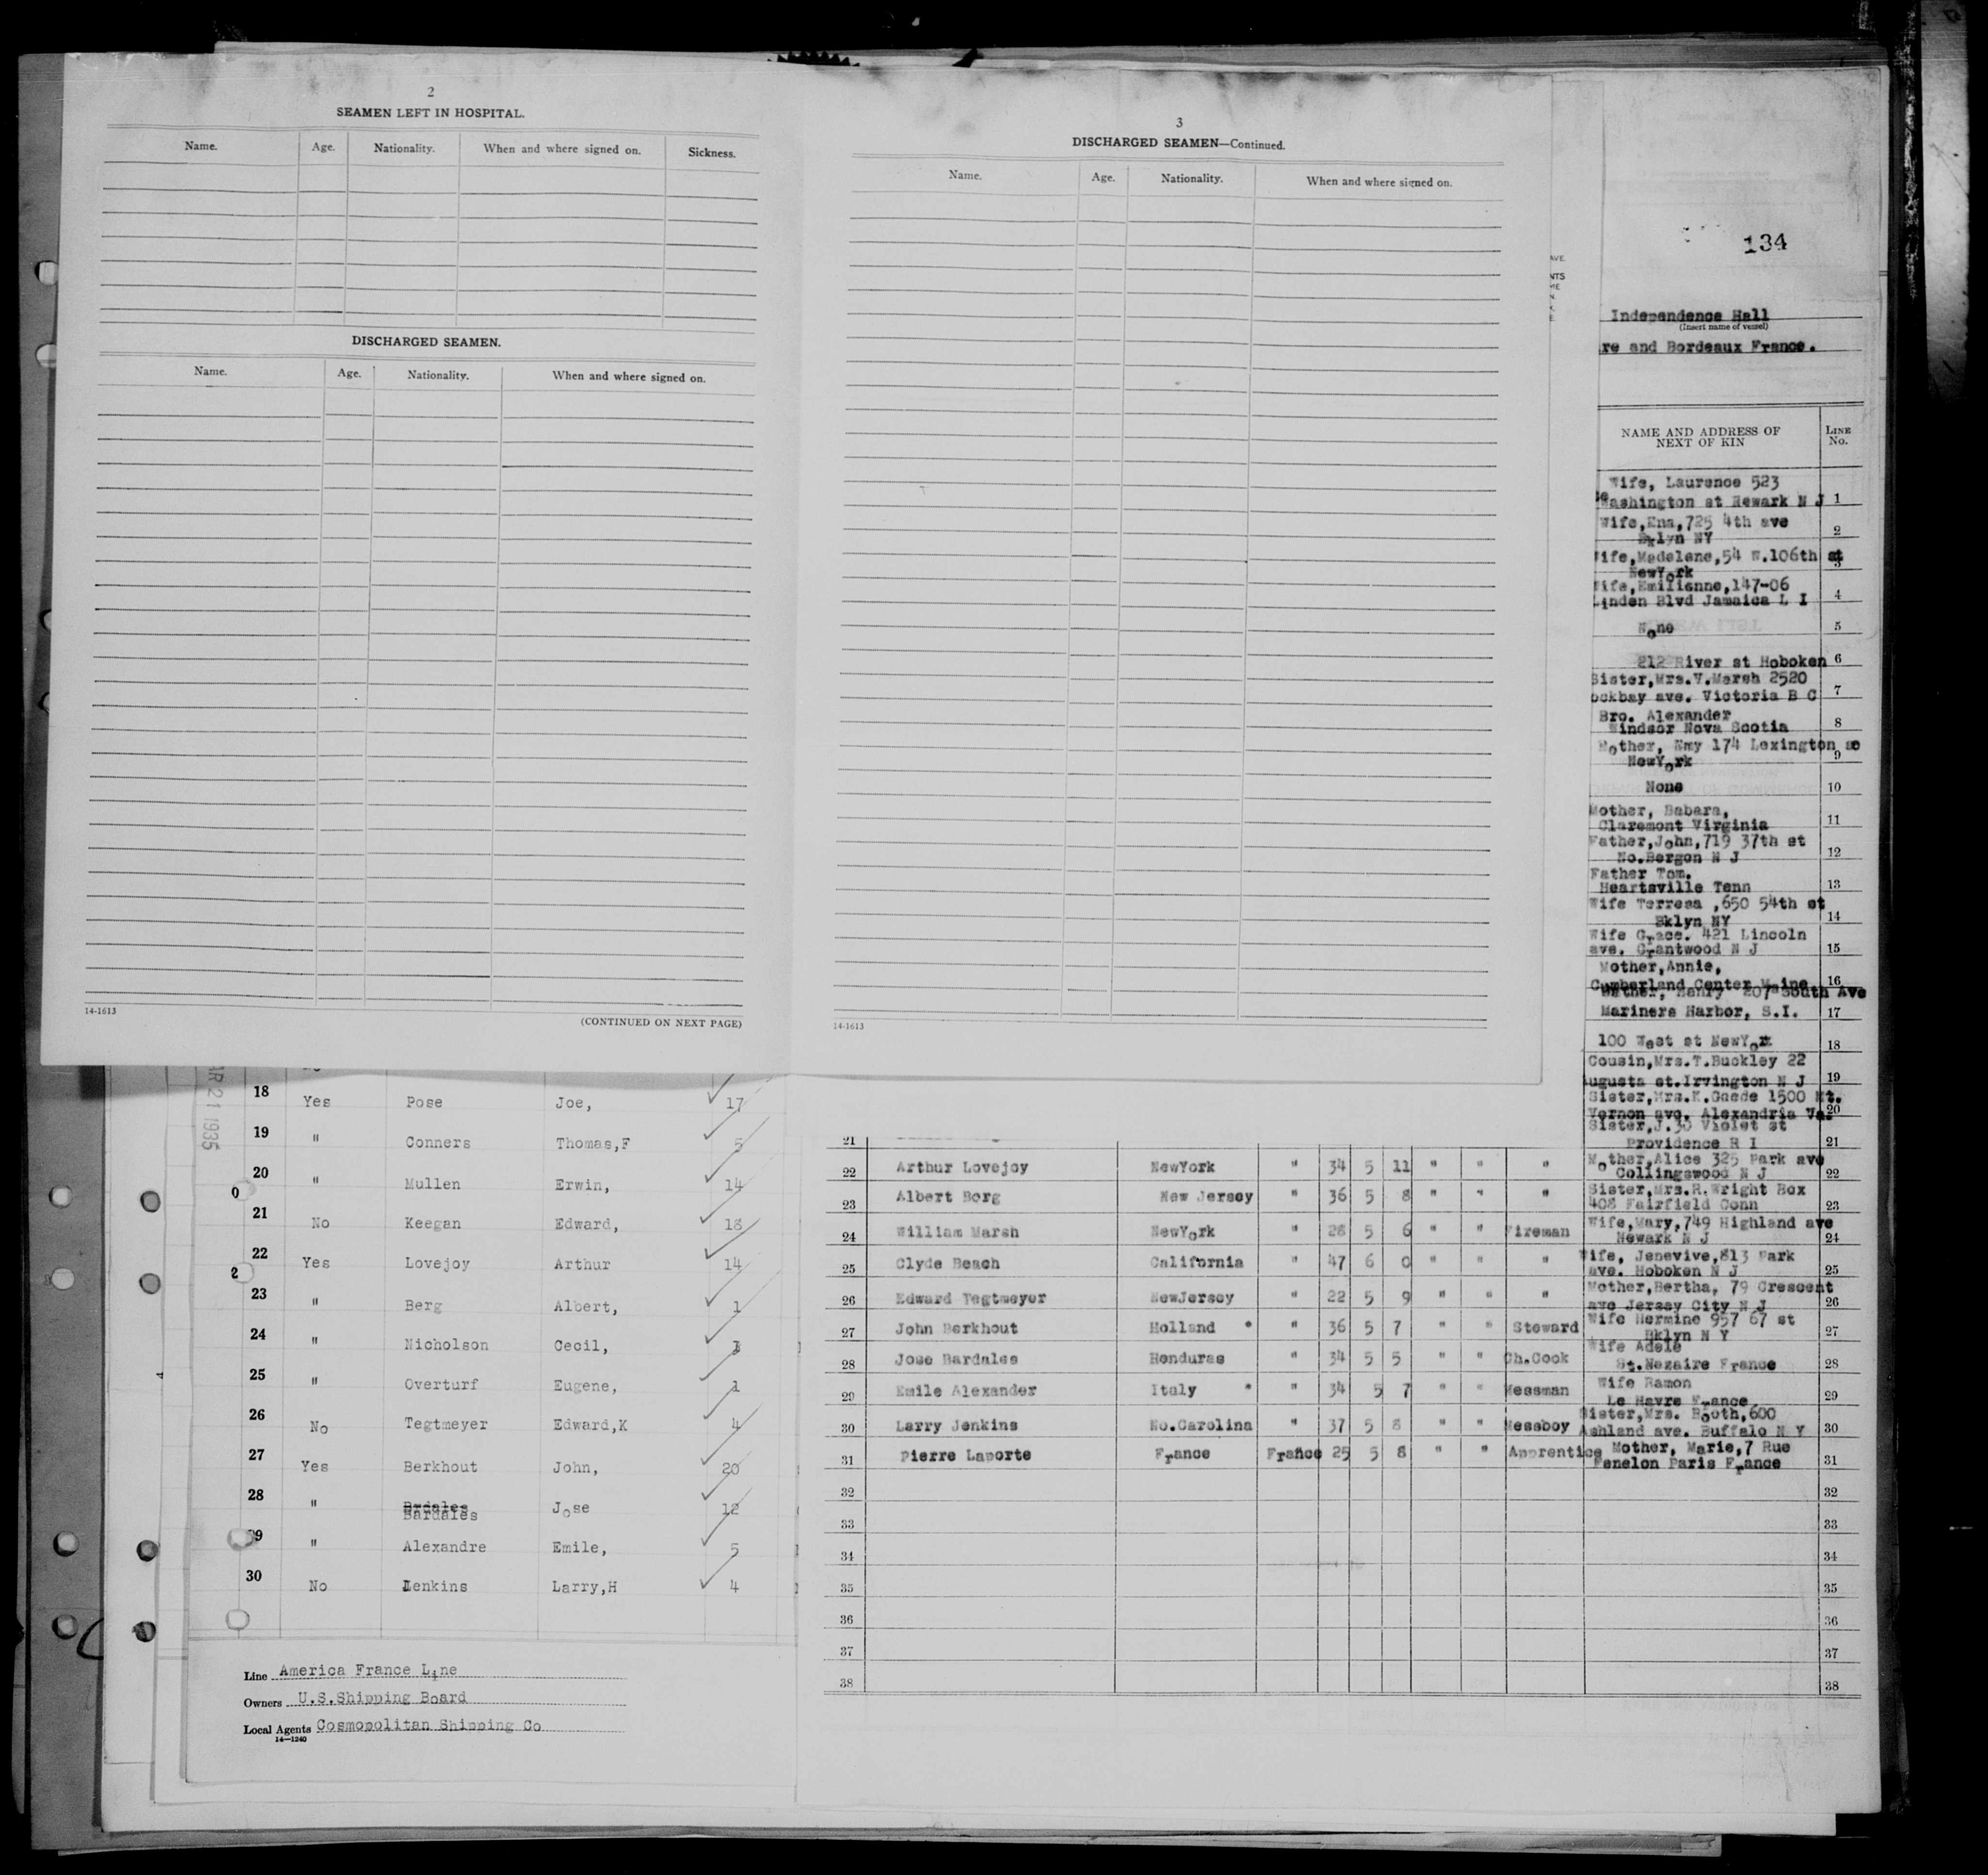 2
SEAMEN LEFT IN HOSPITAL.
Name. Age. Nationality. When and where signed on. Sickness.
DISCHARGED SEAMEN.
Name. Age. Nationality. When and where signed on.
14-1613
(CONTINUED ON NEXT PAGE)
3
DISCHARGED SEAMEN—Continued.
Name. Age. Nationality. When and where signed on.
14-1613
134
Independence Hall
(Insert name of vessel)
re and Bordeaux France.
NAME AND ADDRESS OF NEXT OF KIN
LINE No.
Wife, Laurence 523
Washington st Newark N J 1
Wife,Ena,725 4th ave
Bklyn NY 2
Wife,Madelene,54 W.106th st
NewYork 3
Wife,Emilianne,147-06
Linden Blvd Jamaica L I 4
None 5
212 River st Hoboken 6
Sister,Mrs.V.Marsh 2520
ockbay ave. Victoria B C 7
Bro. Alexander
Windsor Nova Scotia 8
Mother, Emy 174 Lexington
NewYork 9
None 10
Mother, Babara,
Claremont Virginia 11
Father,John,719 37th st
No.Bergon N J 12
Father Tom.
Heartsville Tenn 13
Wife Terresa ,650 54th st
Bklyn NY 14
Wife Grace. 421 Lincoln
ave. Grantwood N J 15
Mother,Annie,
Cumberland Center Maine 16
Henry 207 South Ave
Mariners Harbor, S.I. 17
100 West st NewYork 18
Cousin,Mrs.T.Buckley 22
ugusta st.Irvington N J 19
Sister,Mrs.K.Gaede 1500 Mt.
Vernon ave. Alexandria Va. 20
Sister,J.30 Violet st
Providence R I 21
Mother,Alice 325 Park ave
Collingswood N J 22
Sister,Mrs.R.Wright Box
408 Fairfield Conn 23
Wife,Mary,749 Highland ave
Newark N J 24
Wife, Jenevive,813 Park
ave. Hoboken N J 25
Mother,Bertha, 79 Crescent
ave Jersey City N J 26
Wife Hermine 957 67 st
Bklyn N Y 27
Wife Adele
St.Nazaire France 28
Wife Ramon
Le Havre France 29
Sister,Mrs. Booth,600
Ashland ave. Buffalo N Y 30
Mother, Marie,7 Rue
Fenelon Paris France 31
32
33
34
35
36
37
38
AR 21 1935
18 Yes Pose Joe, 17
19 " Conners Thomas,F 5
20 " Mullen Erwin, 14
21 No Keegan Edward, 18
22 Yes Lovejoy Arthur 14
23 " Berg Albert, 1
24 " Nicholson Cecil,
25 " Overturf Eugene, 1
26 No Tegtmeyer Edward,K 4
27 Yes Berkhout John, 20
28 " Brdales Bardales Jose 12
29 " Alexandre Emile, 5
30 No Jenkins Larry,H 4
Line America France Line
Owners U.S.Shipping Board
Local Agents Cosmopolitan Shipping Co
14—1240
21
22 Arthur Lovejoy NewYork " 34 5 11 " " "
23 Albert Borg New Jersey " 36 5 8 " " "
24 William Marsh NewYork " 28 5 6 " " Fireman
25 Clyde Beach California " 47 6 0 " " "
26 Edward Tegtmeyer NewJersey " 22 5 9 " " "
27 John Berkhout Holland * " 36 5 7 " " Steward
28 Jose Bardales Honduras " 34 5 5 " " Ch.Cook
29 Emile Alexander Italy * " 34 5 7 " " Messman
30 Larry Jenkins No.Carolina " 37 5 8 " " Messboy
31 Pierre Laporte France France 25 5 8 " " Apprentice
32
33
34
35
36
37
38